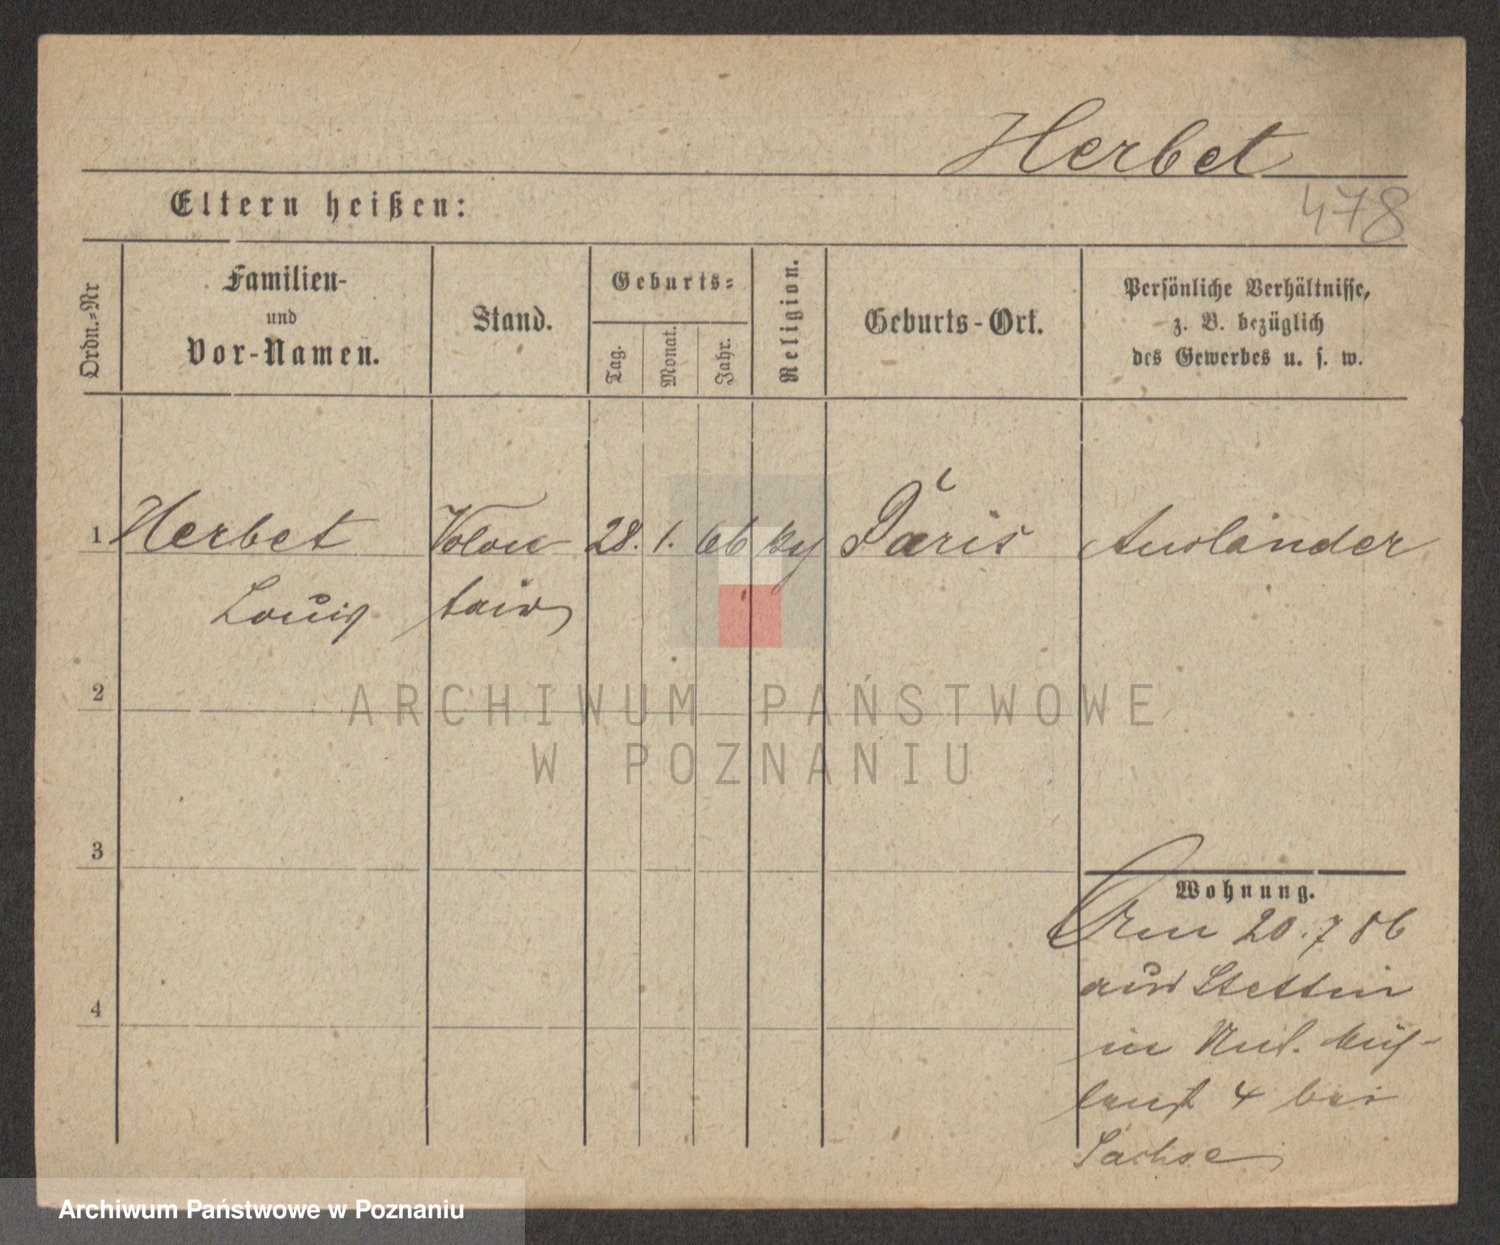 Herbet
478
Eltern heißen:
Ordn.=Nr
Familien-
und
Vor-Namen.
Stand.
Geburts=
Tag.
Monat.
Jahr.
Religion.
Geburts-Ort.
Persönliche Verhältnisse,
z. B. bezüglich
des Gewerbes u. s. w.
1 Herbet Volon 28. 1. 66 Paris Ausländer
Louis tair
2
3
4
Wohnung.
20. 7 86
aus Stettin
in
4 bei
Sachse
ARCHIWUM PAŃSTWOWE
W POZNANIU
Archiwum Państwowe w Poznaniu